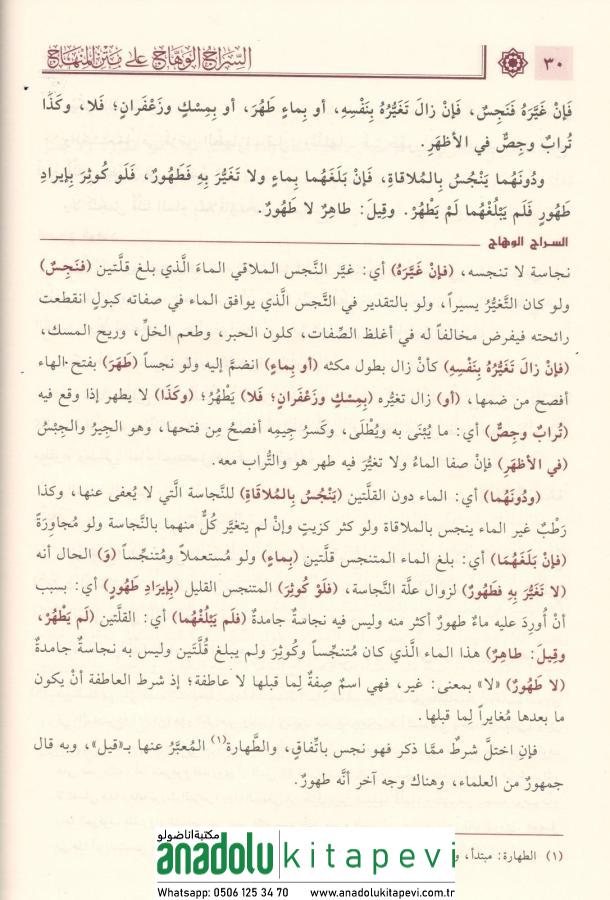 ٣٠
السِّرَاجُ الوَهَّاجُ عَلَى مَتْنِ المِنْهَاجِ
فَإِنْ غَيَّرَهُ فَنَجِسٌ، فَإِنْ زالَ تَغَيُّرُهُ بِنَفْسِهِ، أو بِماءٍ طَهُرَ، أو بِمِسْكٍ وزَعْفَرانٍ؛ فَلا، وكَذَا
تُرابٌ وجِصٌّ في الأظْهَرِ.
ودُونَهُما يَنْجُسُ بِالمُلاقاةِ، فَإِنْ بَلَغَهُما بِماءٍ ولا تَغَيُّرَ بِهِ فَطَهُورٌ، فَلَو كُوثِرَ بِإيرادِ
طَهُورٍ فَلَم يَبْلُغْهُما لَمْ يَطْهُرْ. وقِيلَ: طاهِرٌ لا طَهُورٌ.
السراج الوهاج
نجاسة لا تنجسه، (فإنْ غَيَّرَهُ) أي: غيَّر النَّجس الملاقي الماءَ الَّذي بلغ قلَّتين (فنَجِسٌ)
ولو كان التَّغيُّرُ يسيراً، ولو بالتقدير في النَّجس الَّذي يوافق الماء في صفاته كبولٍ انقطعت
رائحته فيفرض مخالفاً له في أغلظ الصِّفات، كلون الحبر، وطعم الخلِّ، وريح المسك،
(فإنْ زالَ تَغَيُّرُهُ بِنَفْسِهِ) كأنْ زال بطول مكثه (أو بِماءٍ) انضمَّ إليه ولو نجساً (طَهَرَ) بفتح الهاء
أفصح من ضمها، (أو) زال تغيُّره (بِمِسْكٍ وزَعْفَرانٍ؛ فَلا) يَطْهُرُ؛ (وكَذَا) لا يطهر إذا وقع فيه
(تُرابٌ وجِصٌّ) أي: ما يُبْنَى به ويُطْلَى، وكَسرُ جِيمِه أفصحُ مِن فتحها، وهو الجِيرُ والجِبْسُ
(في الأظْهَرِ) فإنْ صفا الماءُ ولا تغيُّرَ فيه طهر هو والتُّراب معه.
(ودُونَهُما) أي: الماء دون القلَّتين (يَنْجُسُ بِالمُلاقاةِ) للنَّجاسة الَّتي لا يُعفى عنها، وكذا
رَطْبٌ غير الماء ينجس بالملاقاة ولو كثر كزيتٍ وإنْ لم يتغيَّر كُلٌّ منهما بالنَّجاسة ولو مُجاوِرَةً
(فإنْ بَلَغَهُمَا) أي: بلغ الماء المتنجس قلَّتين (بِماءٍ) ولو مُستعملاً ومُتنجِّساً (وَ) الحال أنه
(لا تَغَيُّرَ بِهِ فَطَهُورٌ) لزوال علَّة النَّجاسة، (فلَوْ كُوثِرَ) المتنجس القليل (بِإيرَادِ طَهُورٍ) أي: بسبب
أنْ أُورِدَ عليه ماءٌ طهورٌ أكثر منه وليس فيه نجاسة جامدةٌ (فلَم يَبْلُغْهُما) أي: القلَّتين (لَم يَطْهُرْ،
وقِيلَ: طاهِرٌ) هذا الماء الَّذي كان مُتنجِّساً وكُوثِرَ ولم يبلغ قُلَّتَين وليس به نجاسةٌ جامدةٌ
(لا طَهُورٌ) «لا» بمعنى: غير، فهي اسمٌ صِفةٌ لِما قبلها لا عاطفة؛ إذ شرط العاطفة أنْ يكون
ما بعدها مُغايراً لِما قبلها.
فإنِ اختلَّ شرطٌ ممَّا ذكر فهو نجس باتِّفاقٍ، والطَّهارة(١) المُعبَّرُ عنها بـ«قيل»، وبه قال
جمهورٌ من العلماء، وهناك وجه آخر أنَّه طهورٌ.
(١) الطهارة: مبتدأ،
مكتبة اناضولو
anadolu kitapevi
Whatsapp: 0506 125 34 70 www.anadolukitapevi.com.tr